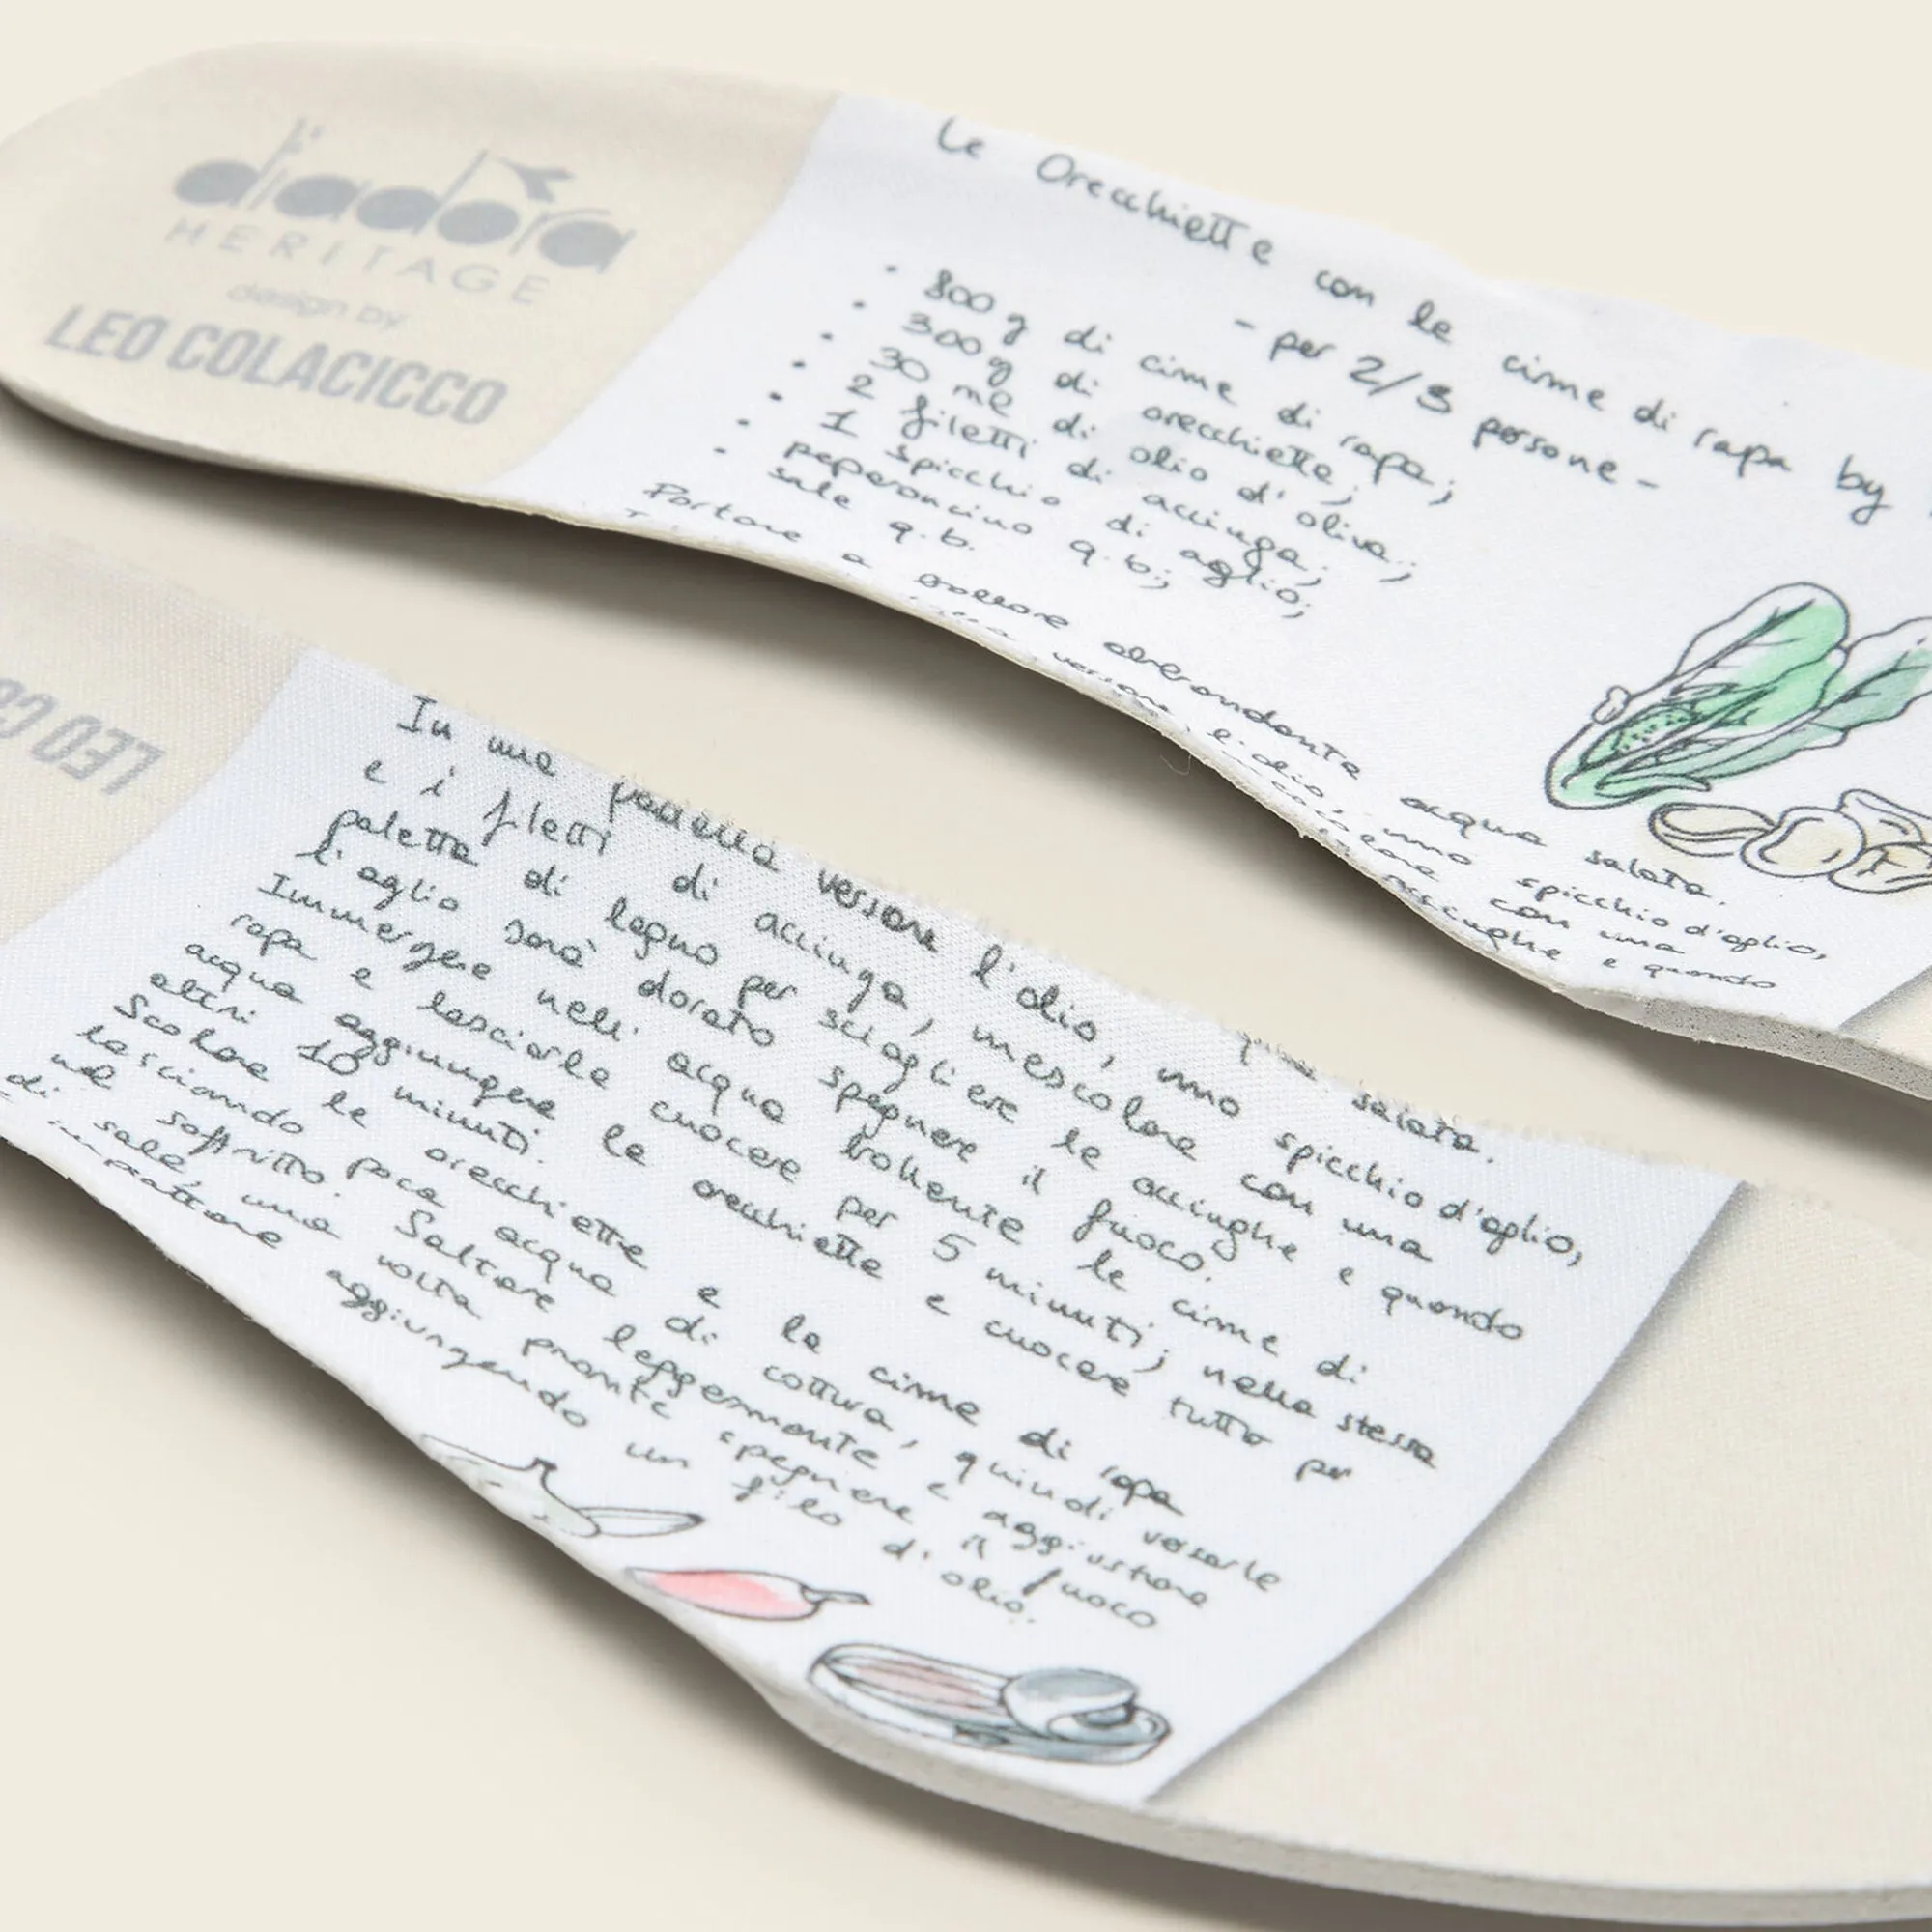 diadora
HERITAGE
design by
LEO COLACICCO
Le Orecchiette con le cime di rapa by
- per 2/3 persone -
• 800 g di cime di rapa;
• 300 g di orecchiette;
• 30 ml di olio d'oliva;
• 2 filetti di acciuga;
• 1 spicchio di aglio;
• peperoncino q.b.;
• sale q.b.
Portare a bollore abbondante acqua salata.
versare l'olio, uno spicchio d'aglio,
con una
acciughe e quando
LEO CO
salata.
In una padella versare l'olio, uno spicchio d'aglio,
e i filetti di acciuga, mescolare con una
paletta di legno per sciogliere le acciughe e quando
l'aglio sarà dorato spegnere il fuoco.
Immergere nell'acqua bollente le cime di
rapa e lasciarle cuocere per 5 minuti; nella stessa
acqua aggiungere le orecchiette e cuocere tutto per
altri 10 minuti.
Scolare le orecchiette e le cime di rapa
lasciando poca acqua di cottura, quindi versarle
nel soffritto. Saltare leggermente e aggiustare
di sale, una volta pronte spegnere il fuoco
impiattare aggiungendo un filo d'olio.